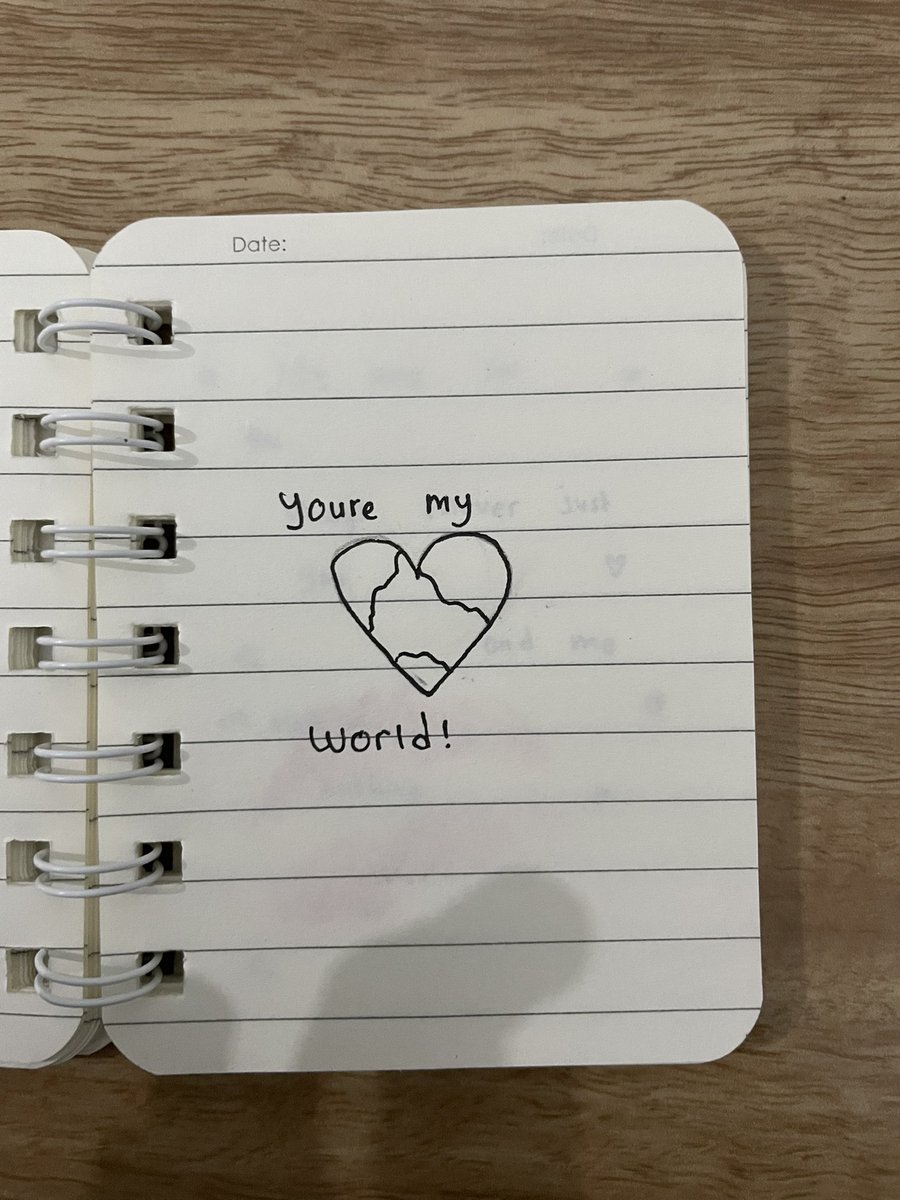 Date:
youre my
world!